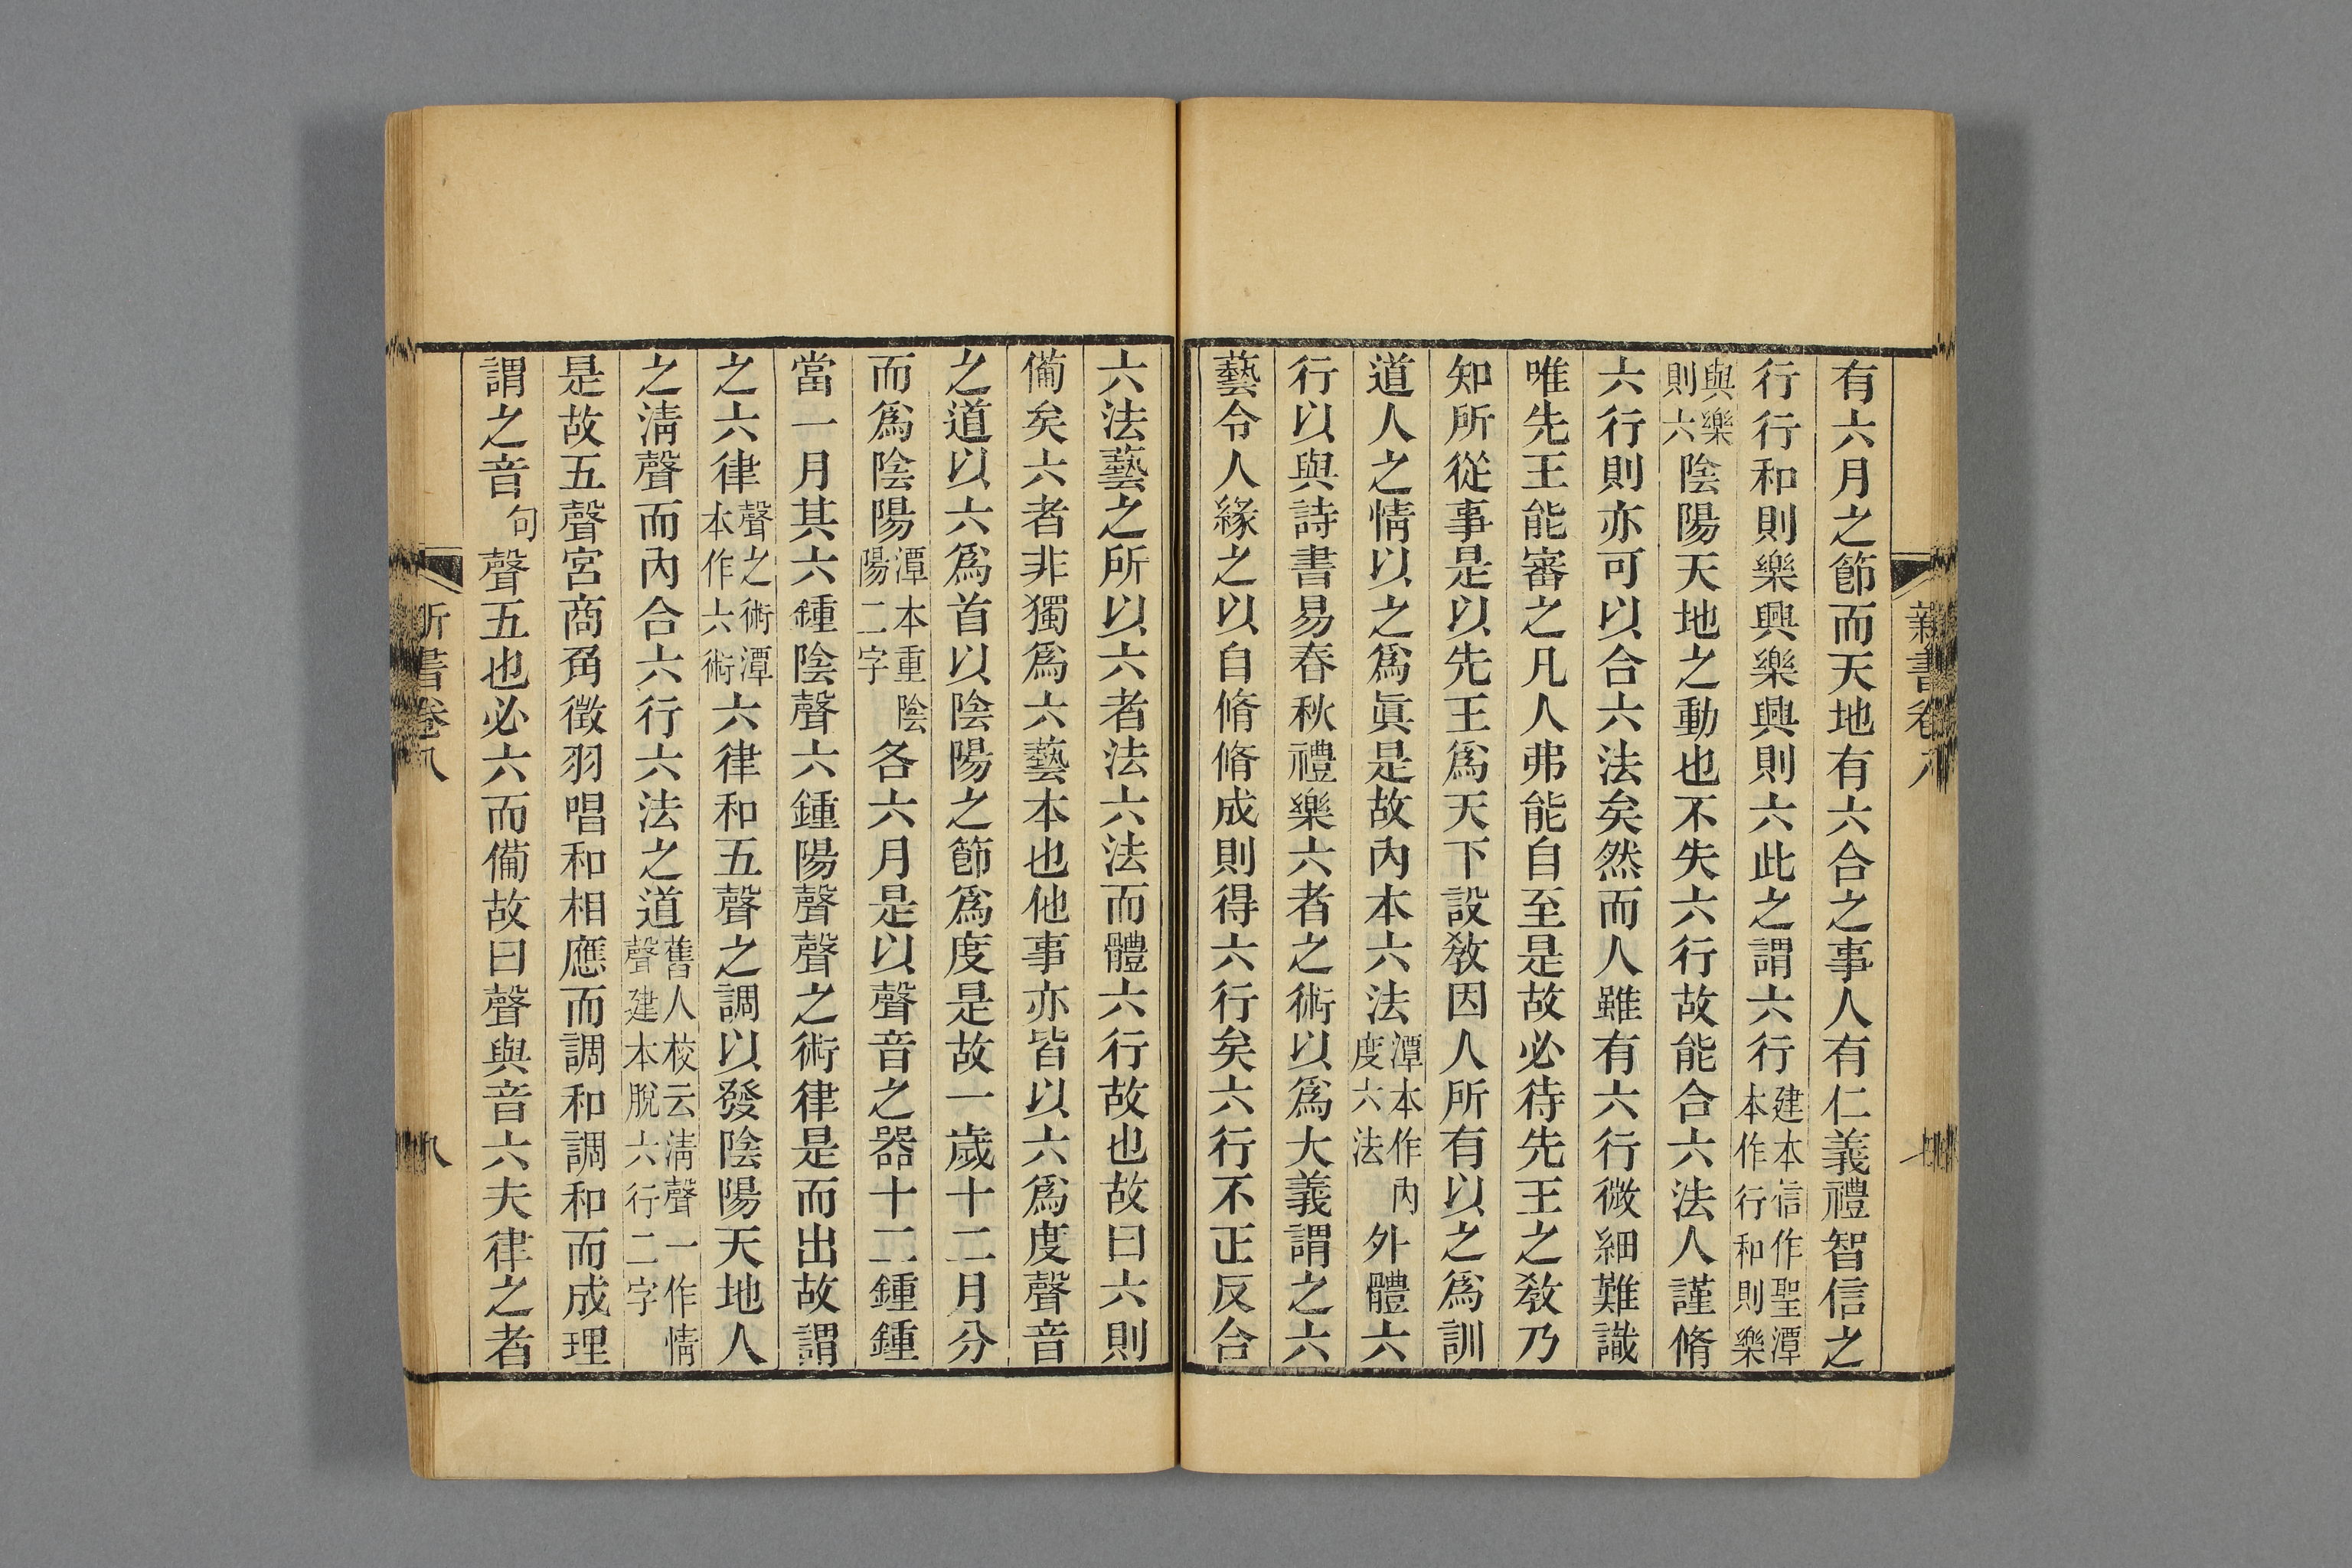 新書卷八
七
有六月之節而天地有六合之事人有仁義禮智信之
行行和則樂興樂興則六此之謂六行建本信作聖潭本作行和則樂
與樂則六陰陽天地之動也不失六行故能合六法人謹脩
六行則亦可以合六法矣然而人雖有六行微細難識
唯先王能審之凡人弗能自至是故必待先王之敎乃
知所從事是以先王爲天下設敎因人所有以之爲訓
道人之情以之爲眞是故內本六法潭本作內度六法外體六
行以與詩書易春秋禮樂六者之術以爲大義謂之六
藝令人緣之以自脩脩成則得六行矣六行不正反合
六法藝之所以六者法六法而體六行故也故曰六則
備矣六者非獨爲六藝本也他事亦皆以六爲度聲音
之道以六爲首以陰陽之節爲度是故一歲十二月分
而爲陰陽潭本重陰陽二字各六月是以聲音之器十二鍾鍾
當一月其六鍾陰聲六鍾陽聲聲之術律是而出故謂
之六律聲之術潭本作六術六律和五聲之調以發陰陽天地人
之淸聲而內合六行六法之道舊人校云淸聲一作情聲建本脫六行二字
是故五聲宮商角徵羽唱和相應而調和調和而成理
謂之音句聲五也必六而備故曰聲與音六夫律之者
新書卷八
八